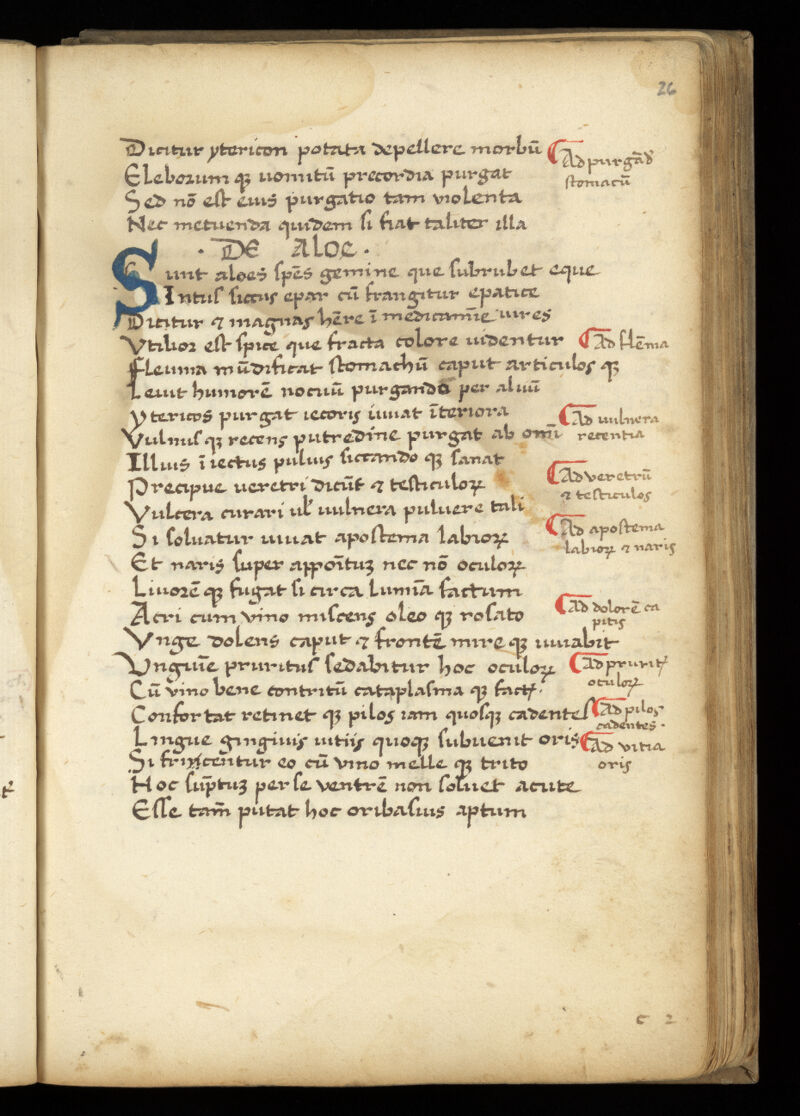 26
Dicitur ytericon potata depellere morbū
Ad purgād
stomacū
Eleborum qꝫ uomitū precordia purgat
Sed nō est eius purgatio tam violenta
Nec metuenda quidem si fiat taliter illa
· DE ALOE ·
Sunt aloes spēs gemine que subrubet eque
Intus siccus epar cū frangitur epatice
Dicitur ⁊ magnas hēre ī medicamīe uires
Vtilior est spice que fracta colore uidentur
Ad flēma
Fleuma mūdificat stomachū caput articulos qꝫ
Leuit humorē nocuū purgando per aluū
Ytericos purgat iecoris iuuat īteriora
Ad uulnera
recentia
Vulnus qꝫ recens putredine purgat ab omī
Illius īiectus puluis siccando qꝫ sanat
Precipue ueretri dicūt ⁊ testiculoꝝ
Ad veretrū
⁊ testiculos
Vulcera curari ul uulnera puluere tali
Si soluatur iuuat apostema labioꝝ
Ad apostema
labioꝝ ⁊ naris
Et naris super appoītuꝫ nec nō oculoꝝ
Liuorē qꝫ fugat si circa lumīa factum
Acri cum vino miscens oleo qꝫ rosato
Ad dolorē ca
pitis
Vnge dolens caput ⁊ frontē mire qꝫ iuuabit
Vnguīe pruritus sedabitur hoc oculoꝝ
Ad prurit
oculoꝝ
Cū vino bene contritū cataplasma qꝫ fact
Confortat retinet qꝫ pilos iam quosqꝫ cadentes
Ad pilos
cadentes ·
Lingue gingiuis uitiis quoqꝫ subuenit oris
Ad vitia
oris
Si friscentur eo cū vino melle qꝫ trito
Hoc sūptuꝫ per se ventrē non soluet acute
Esse tam̄ putat hoc oribasius aptum
c 2